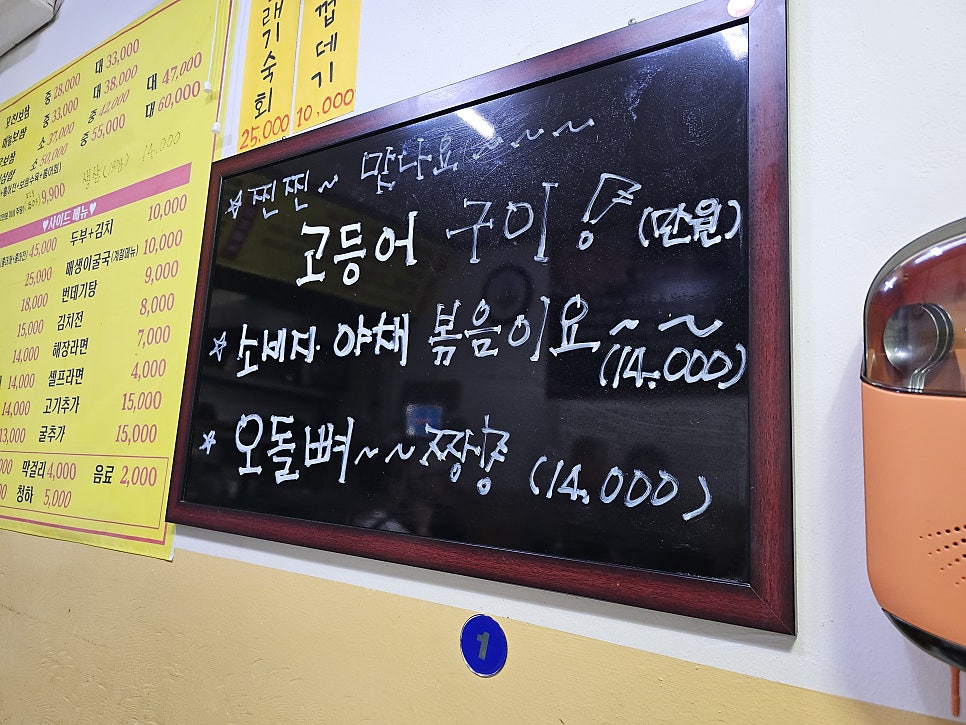 중 28,000 대 33,000
중 33,000 대 38,000
소 37,000 중 42,000 대 47,000
소 50,000 중 55,000 대 60,000
14,000
9,900
♥사이드 메뉴♥
45,000 두부+김치 10,000
25,000 매생이굴국(계절메뉴) 10,000
18,000 번데기탕 9,000
15,000 김치전 8,000
14,000 해장라면 7,000
14,000 셀프라면 4,000
14,000 고기추가 15,000
13,000 굴추가 15,000
막걸리 4,000 음료 2,000
청하 5,000
래기숙회
25,000
껍데기
10,000
☆찐찐~ 맛나요~~~
고등어 구이! (만원)
☆소세지 야채 볶음이요~~
(14.000)
☆오돌뼈~~짱 (14.000)
1